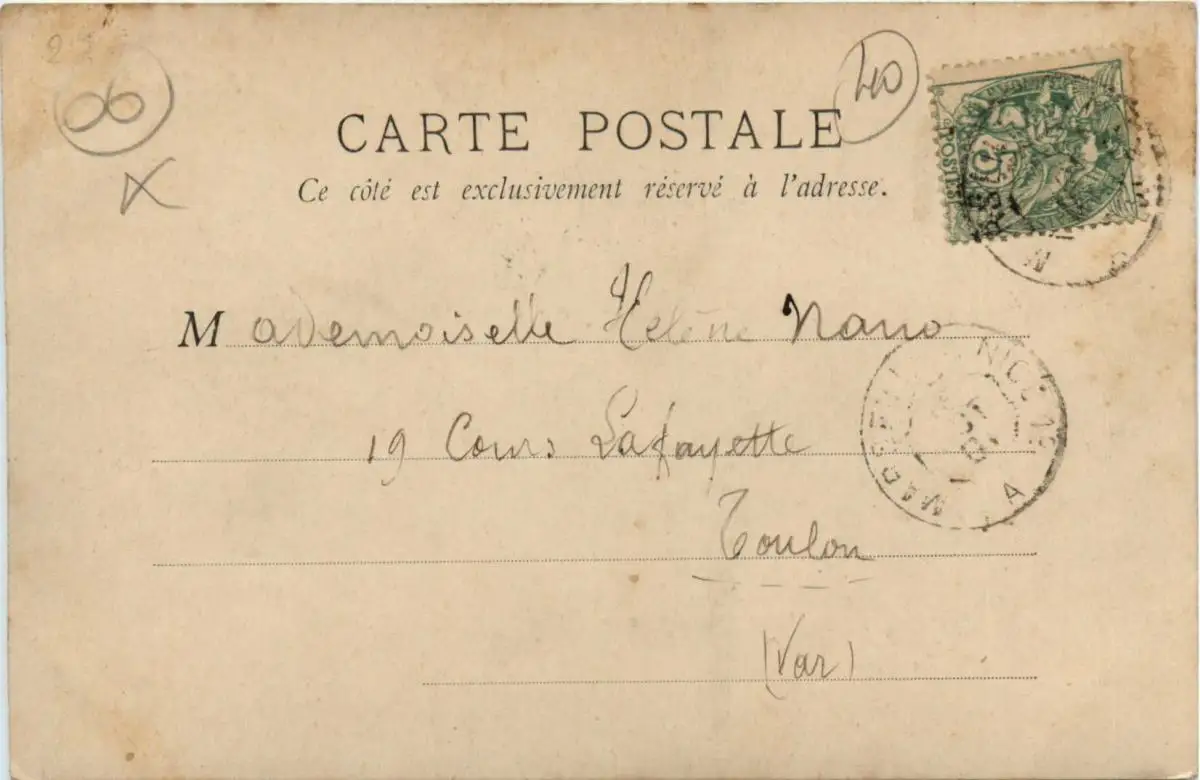 06
40
CARTE POSTALE
Ce côté est exclusivement réservé à l'adresse.
Mademoiselle Hélène Nano
19 Cours Lafayette
Toulon
(Var)
NICE
A